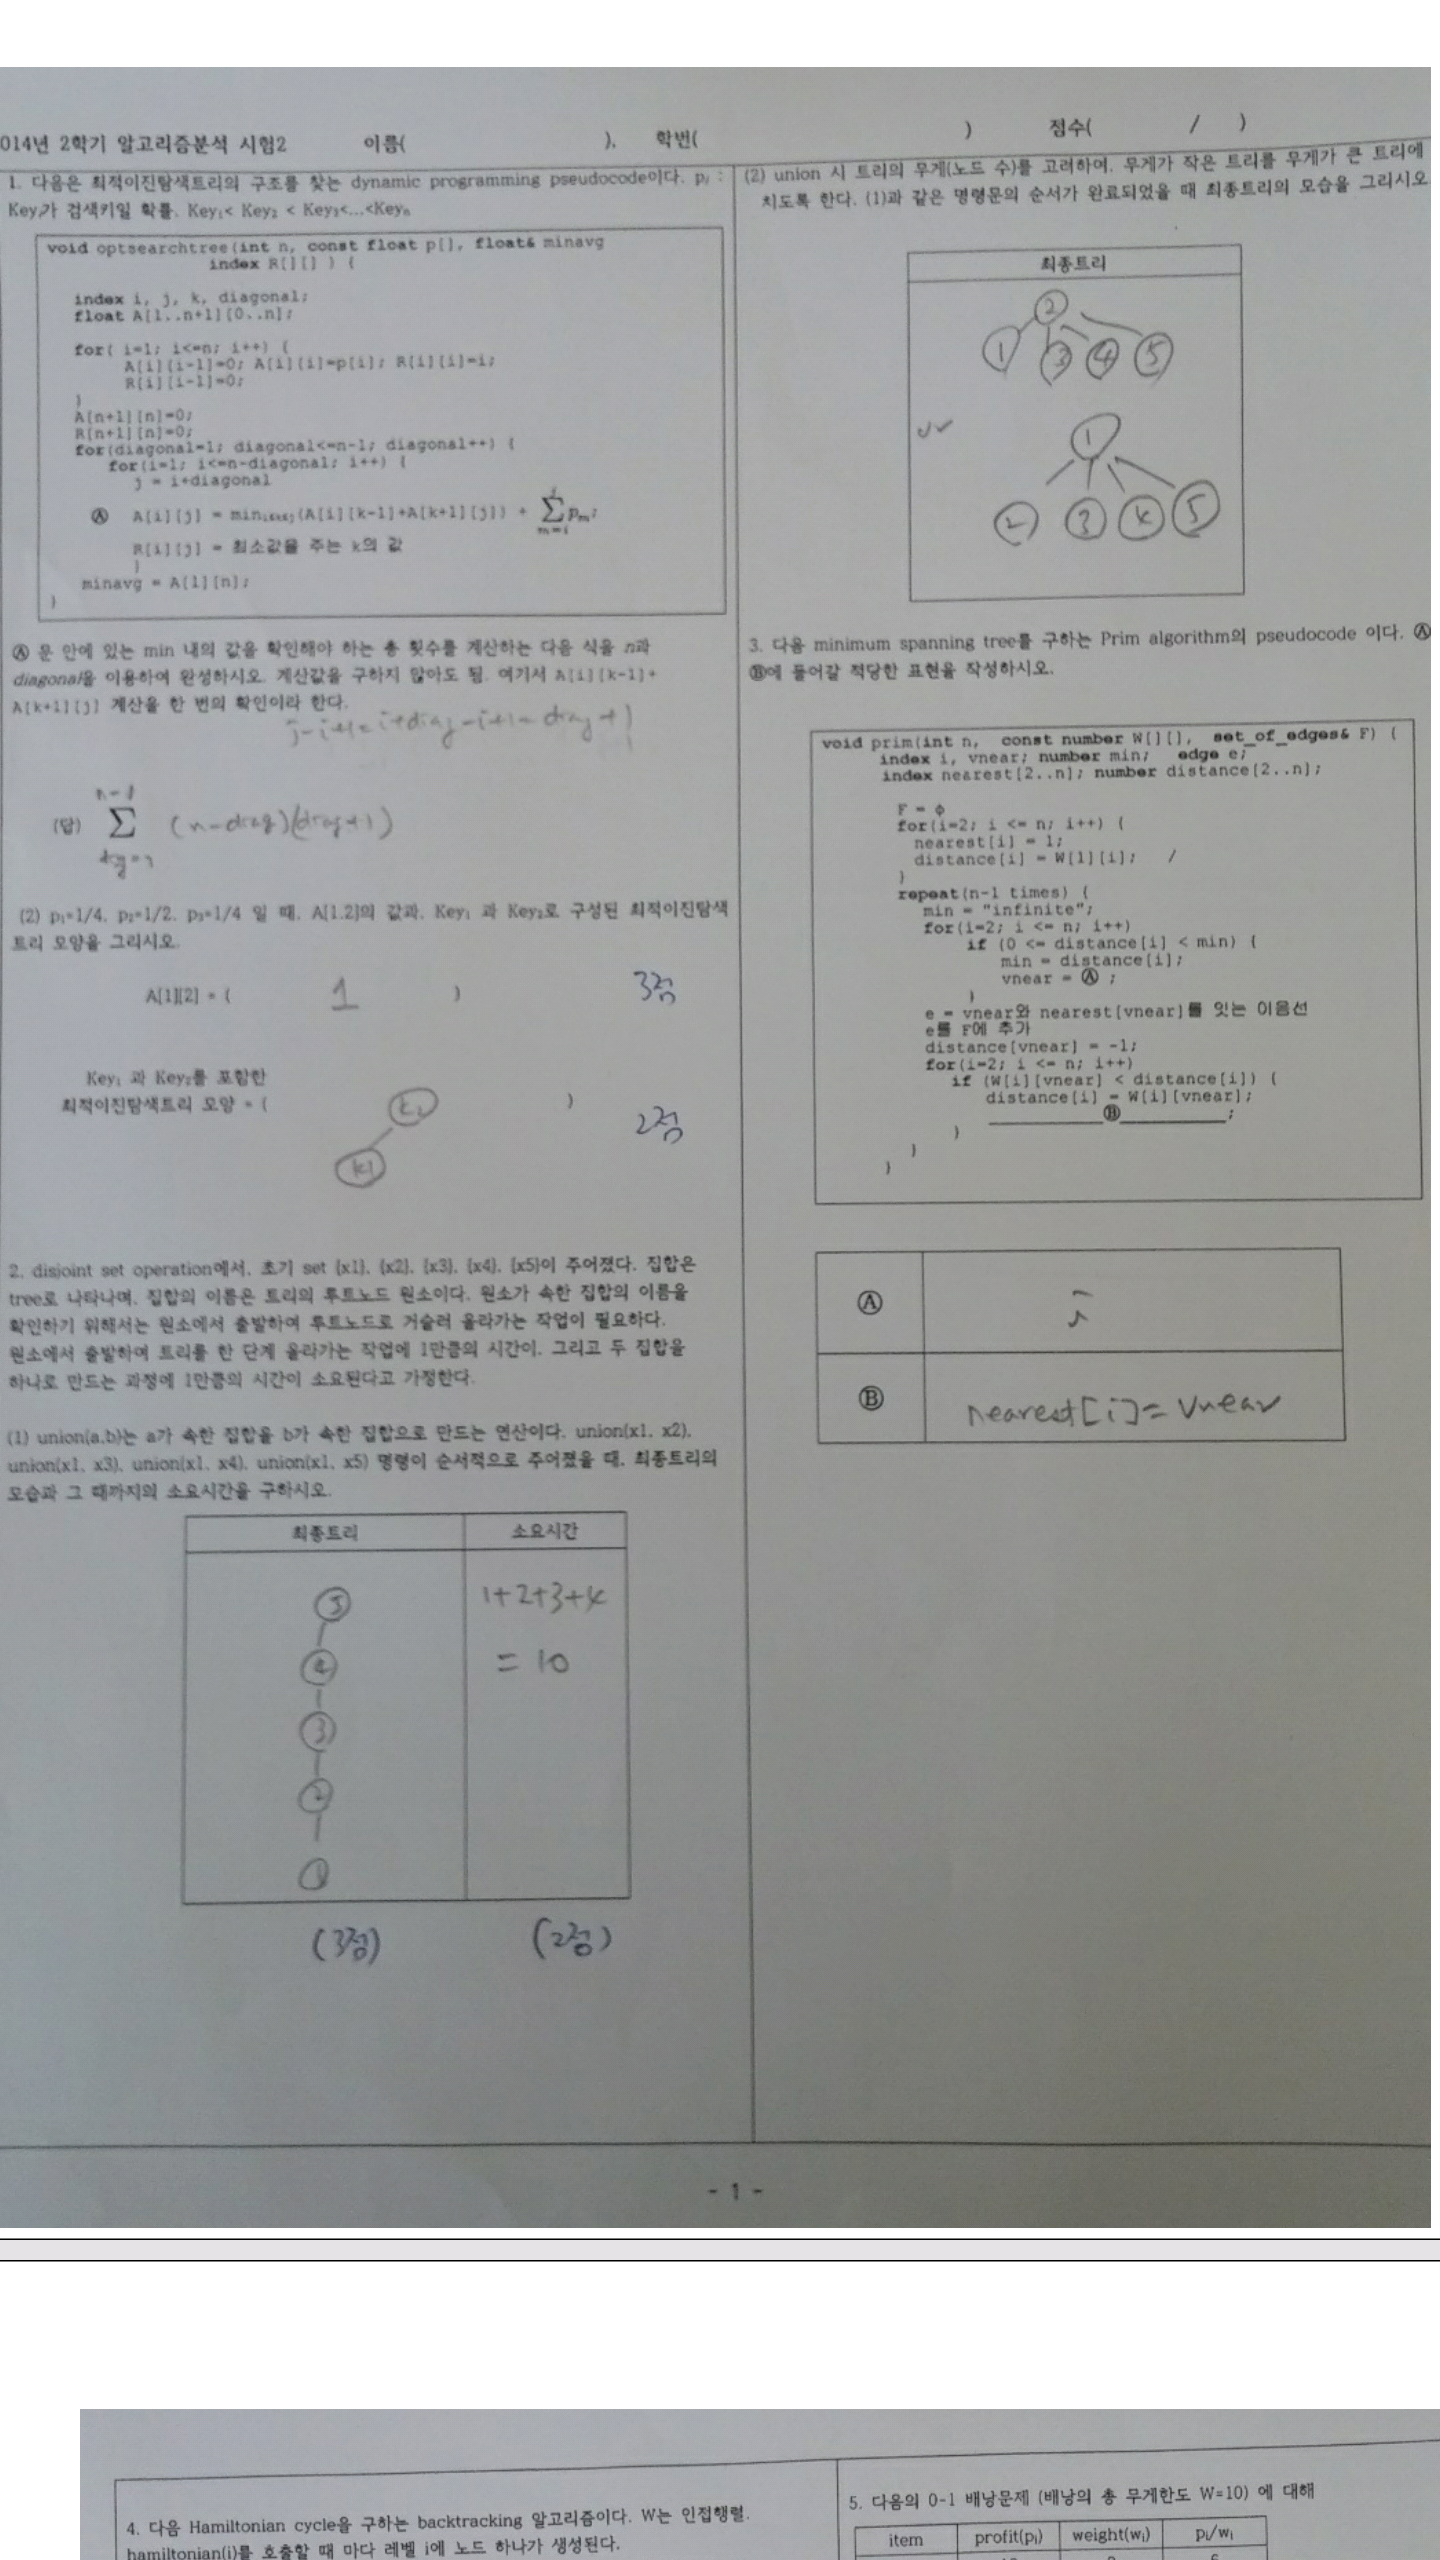 014년 2학기 알고리즘분석 시험2 이름( ), 학번( ) 점수( / )
1. 다음은 최적이진탐색트리의 구조를 찾는 dynamic programming pseudocode이다. pᵢ :
Keyᵢ가 검색키일 확률, Key₁< Key₂ < Key₃<...<Keyₙ
void optsearchtree(int n, const float p[], float& minavg
index R[][] ) {
index i, j, k, diagonal;
float A[1..n+1][0..n];
for( i=1; i<=n; i++) {
A[i][i-1]=0; A[i][i]=p[i]; R[i][i]=i;
R[i][i-1]=0;
}
A[n+1][n]=0;
R[n+1][n]=0;
for(diagonal=1; diagonal<=n-1; diagonal++) {
for(i=1; i<=n-diagonal; i++) {
j = i+diagonal
Ⓐ A[i][j] = min i≤k≤j(A[i][k-1]+A[k+1][j]) + ∑ j m=i pₘ;
R[i][j] = 최소값을 주는 k의 값
}
minavg = A[1][n];
}
Ⓐ 문 안에 있는 min 내의 값을 확인해야 하는 총 횟수를 계산하는 다음 식을 n과
diagonal을 이용하여 완성하시오. 계산값을 구하지 않아도 됨. 여기서 A[i][k-1]+
A[k+1][j] 계산을 한 번의 확인이라 한다.
j-i+1=i+diag-i+1=diag+1
n-1
(답) ∑ (n-diag)(diag+1)
diag=1
(2) p₁=1/4, p₂=1/2, p₃=1/4 일 때, A[1,2]의 값과, Key₁ 과 Key₂로 구성된 최적이진탐색
트리 모양을 그리시오.
A[1][2] = ( 1 ) 3점
Key₁ 과 Key₂를 포함한
최적이진탐색트리 모양 = ( k2 ) 2점
k1
2. disjoint set operation에서, 초기 set {x1}, {x2}, {x3}, {x4}, {x5}이 주어졌다. 집합은
tree로 나타나며, 집합의 이름은 트리의 루트노드 원소이다. 원소가 속한 집합의 이름을
확인하기 위해서는 원소에서 출발하여 루트노드로 거슬러 올라가는 작업이 필요하다.
원소에서 출발하여 트리를 한 단계 올라가는 작업에 1만큼의 시간이, 그리고 두 집합을
하나로 만드는 과정에 1만큼의 시간이 소요된다고 가정한다.
(1) union(a,b)는 a가 속한 집합을 b가 속한 집합으로 만드는 연산이다. union(x1, x2),
union(x1, x3), union(x1, x4), union(x1, x5) 명령이 순서적으로 주어졌을 때, 최종트리의
모습과 그 때까지의 소요시간을 구하시오.
최종트리 소요시간
5 1+2+3+4
4 = 10
3
2
1
(3점) (2점)
(2) union 시 트리의 무게(노드 수)를 고려하여, 무게가 작은 트리를 무게가 큰 트리에
치도록 한다. (1)과 같은 명령문의 순서가 완료되었을 때 최종트리의 모습을 그리시오
최종트리
2
1 3 4 5
1
2 3 4 5
3. 다음 minimum spanning tree를 구하는 Prim algorithm의 pseudocode 이다. Ⓐ
Ⓑ에 들어갈 적당한 표현을 작성하시오.
void prim(int n, const number W[][], set_of_edges& F) {
index i, vnear; number min; edge e;
index nearest[2..n]; number distance[2..n];
F = ϕ
for(i=2; i <= n; i++) {
nearest[i] = 1;
distance[i] = W[1][i]; /
}
repeat(n-1 times) {
min = "infinite";
for(i=2; i <= n; i++)
if (0 <= distance[i] < min) {
min = distance[i];
vnear = Ⓐ ;
}
e = vnear와 nearest[vnear]를 잇는 이음선
e를 F에 추가
distance[vnear] = -1;
for(i=2; i <= n; i++)
if (W[i][vnear] < distance[i]) {
distance[i] = W[i][vnear];
Ⓑ ;
}
}
}
Ⓐ i
Ⓑ nearest[i]= vnear
- 1 -
4. 다음 Hamiltonian cycle을 구하는 backtracking 알고리즘이다. W는 인접행렬.
hamiltonian(i)를 호출할 때 마다 레벨 i에 노드 하나가 생성된다.
5. 다음의 0-1 배낭문제 (배낭의 총 무게한도 W=10) 에 대해
item profit(pᵢ) weight(wᵢ) pᵢ/wᵢ